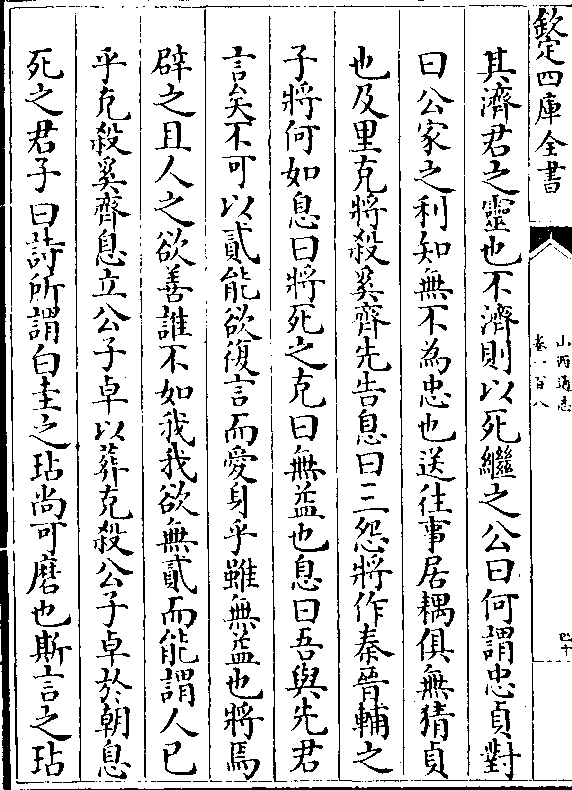 欽定四庫全書
山西通志
卷一百八
四十
其濟君之靈也不濟則以死繼之公曰何謂忠貞對
曰公家之利知無不為忠也送往事居耦俱無猜貞
也及里克將殺奚齊先告息曰三怨將作秦晉輔之
子將何如息曰將死之克曰無益也息曰吾與先君
言矣不可以貳能欲復言而愛身乎雖無益也將焉
辟之且人之欲善誰不如我我欲無貳而能謂人已
乎克殺奚齊息立公子卓以葬克殺公子卓於朝息
死之君子曰詩所謂白圭之玷尚可磨也斯言之玷